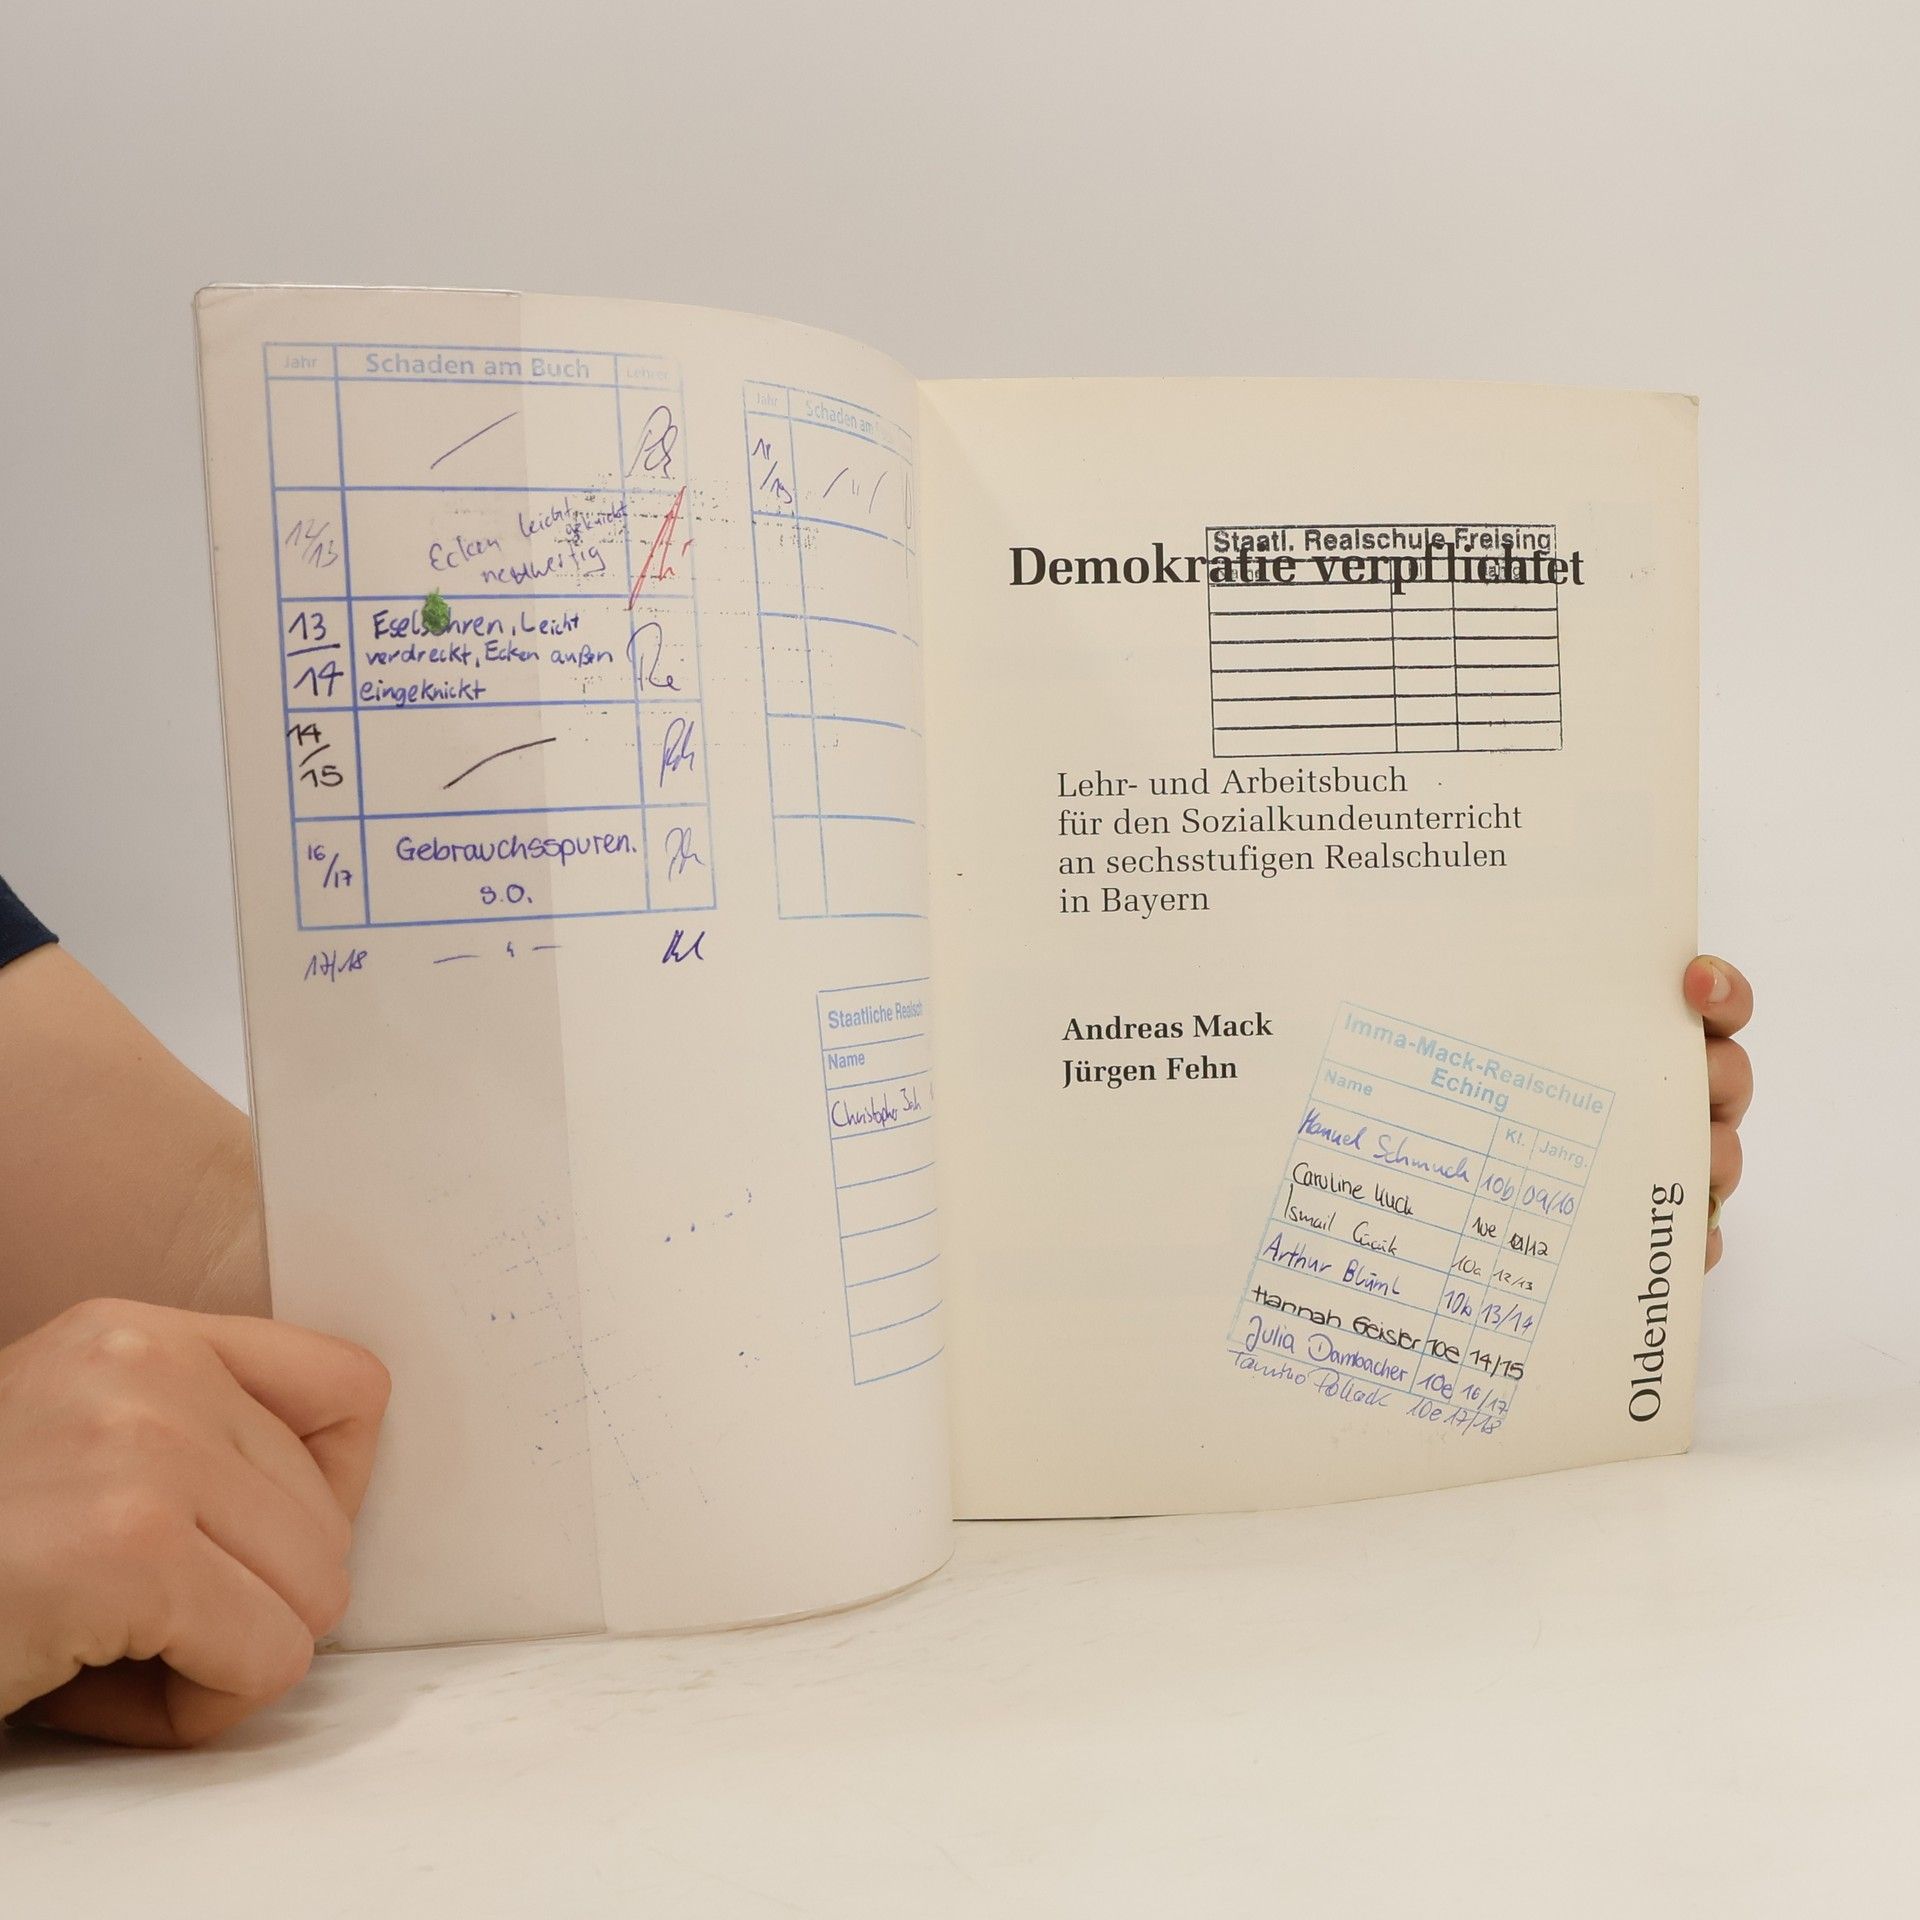 Jahr Schaden am Buch Lehrer
12/13 Ecken leicht geknickt
13/14 Eselsohren, Leicht
verdreckt, Ecken außen
eingeknickt
14/15
16/17 Gebrauchsspuren.
s.O.
17/18 — " —
Jahr Schaden am
/ " /
Staatliche Realsch
Name
Christopher
Staatl. Realschule Freising
Demokratie verpflichtet
Lehr- und Arbeitsbuch
für den Sozialkundeunterricht
an sechsstufigen Realschulen
in Bayern
Andreas Mack
Jürgen Fehn
Imma-Mack-Realschule
Eching
Name Kl. Jahrg.
Manuel Schmuck 10b 09/10
Caroline Kuch 10e 11/12
Ismail 10a 12/13
Arthur Blüml 10b 13/14
Hannah Geisler 10e 14/15
Julia Dambacher 10e 16/17
Pollack 10e 17/18
Oldenbourg